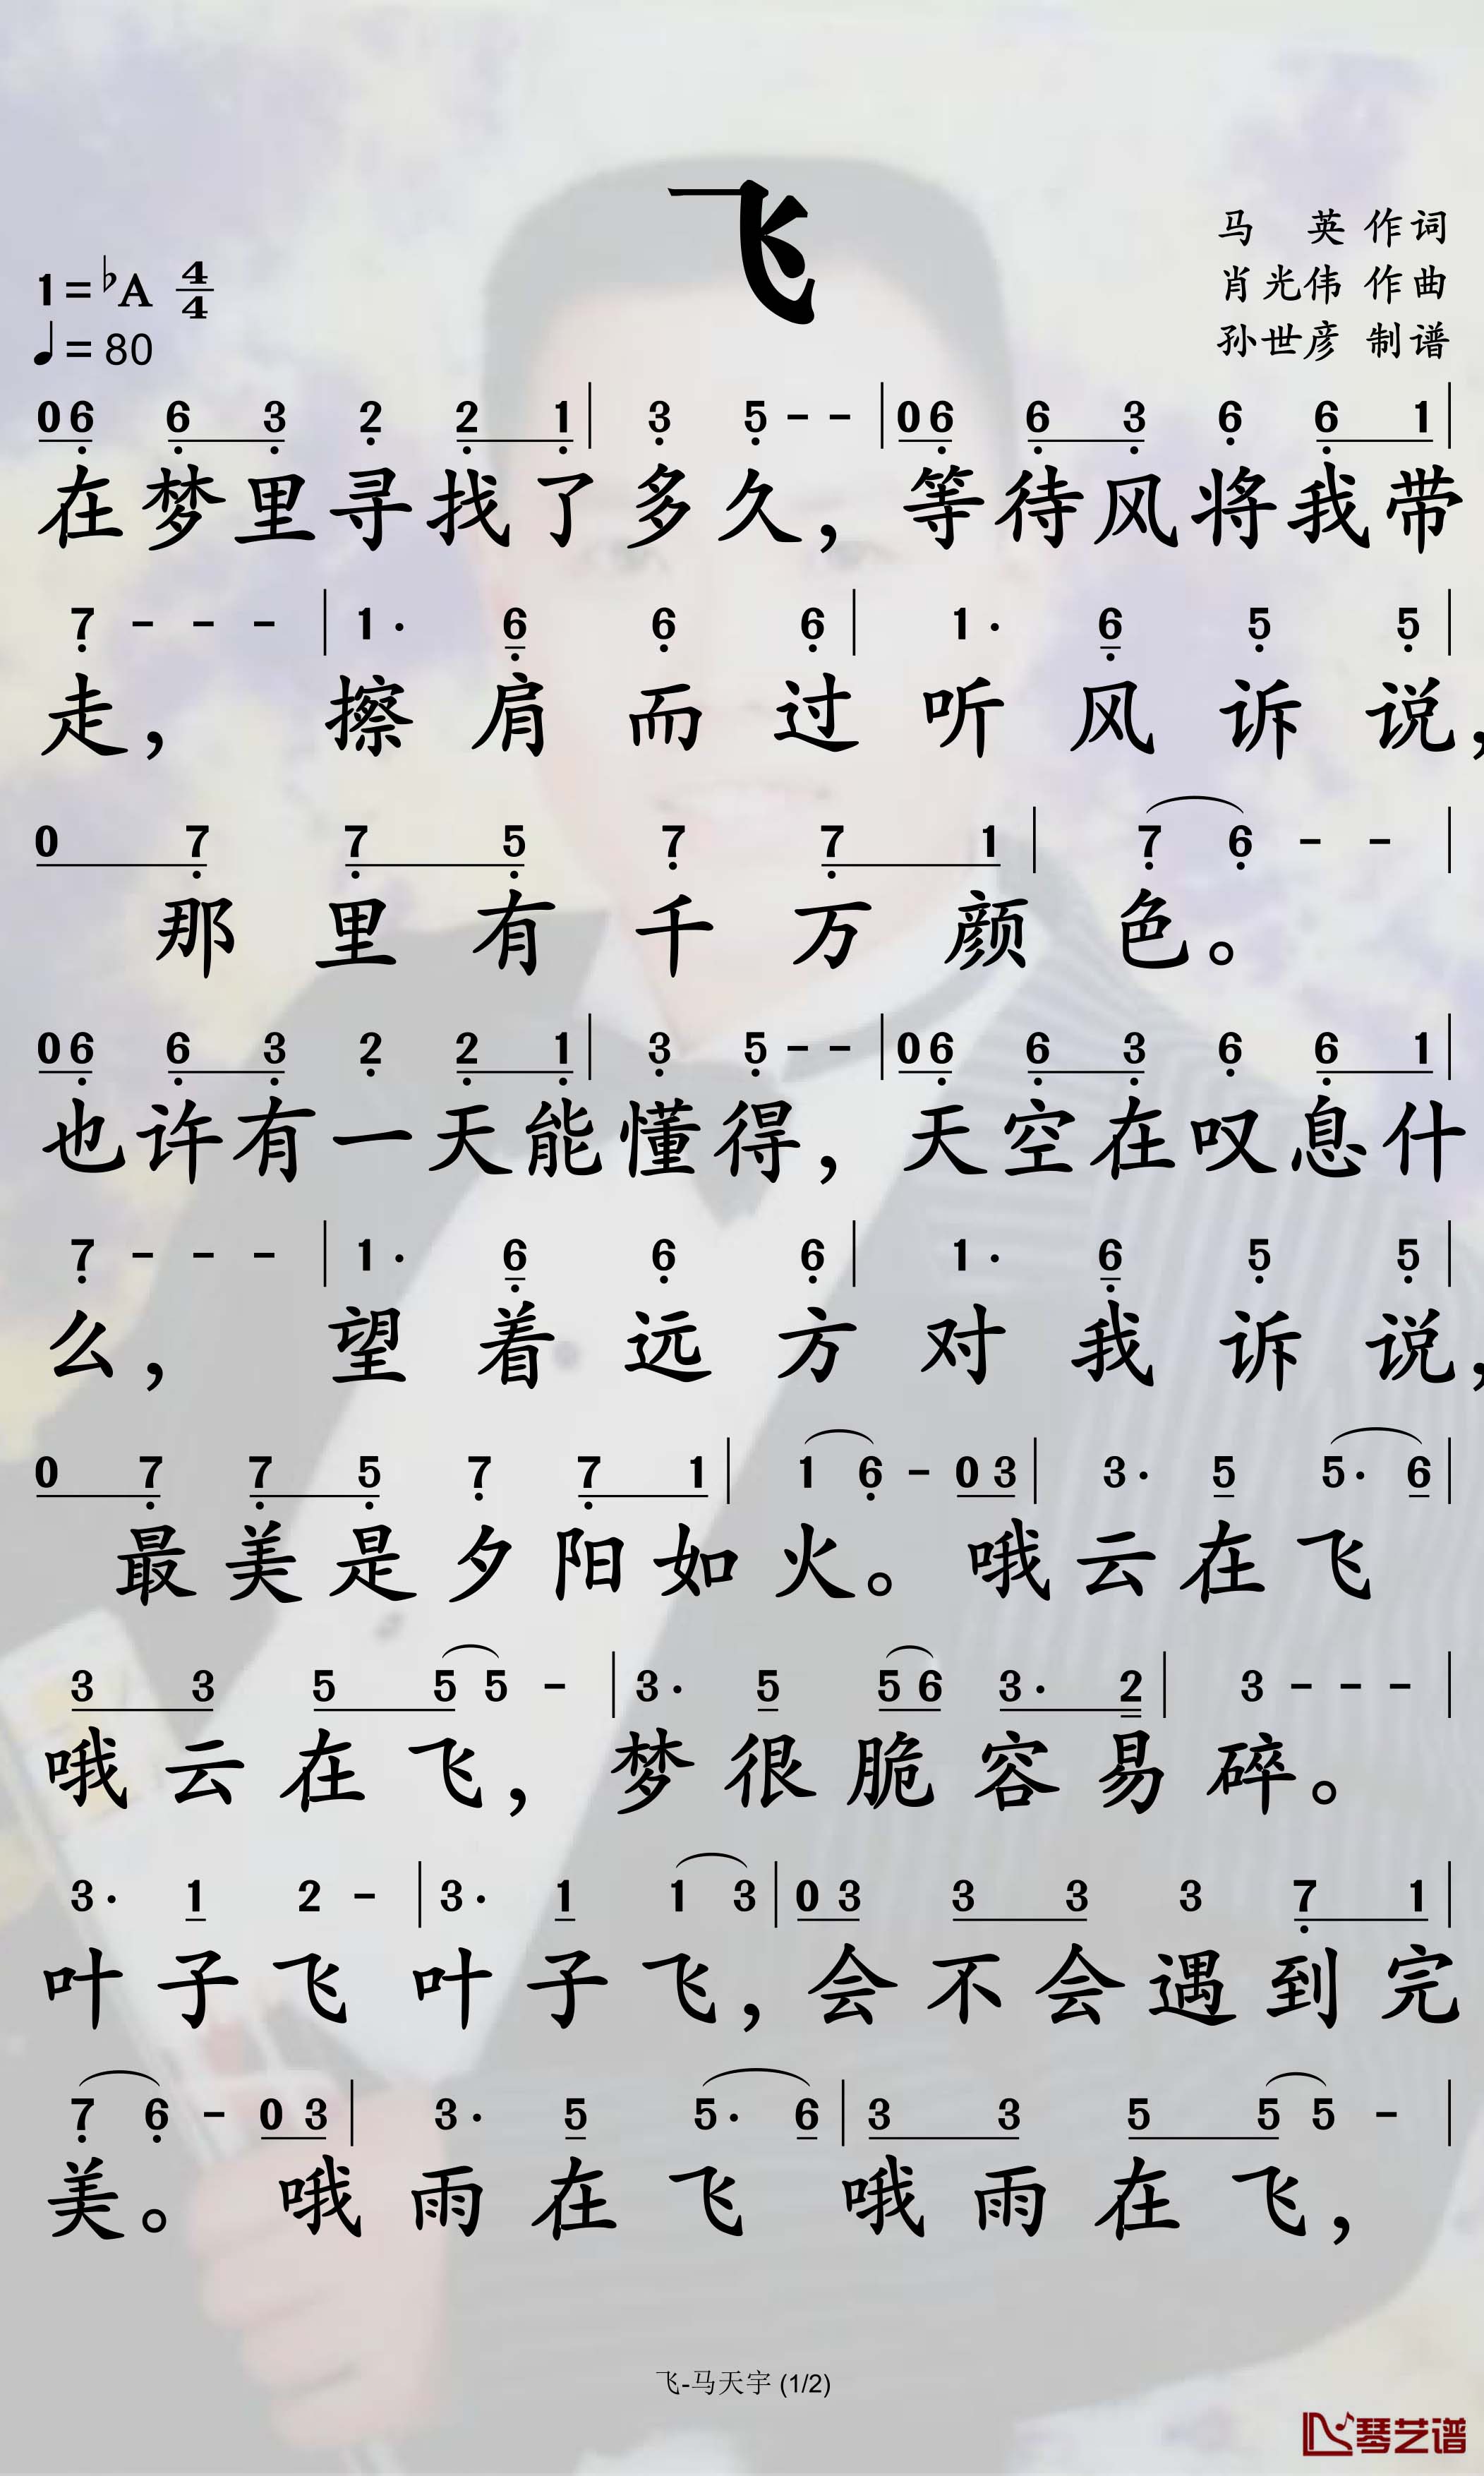 飞
马 英 作词
肖光伟 作曲
孙世彦 制谱
1=♭A 4/4
♩=80
06 6 3 2 2 1 | 3 5 - - | 06 6 3 6 6 1 |
在梦里寻找了多久，等待风将我带
7 - - - | 1· 6 6 6 | 1· 6 5 5 |
走，擦肩而过听风诉说，
0 7 7 5 7 7 1 | 7 6 - - |
那里有千万颜色。
06 6 3 2 2 1 | 3 5 - - | 06 6 3 6 6 1 |
也许有一天能懂得，天空在叹息什
7 - - - | 1· 6 6 6 | 1· 6 5 5 |
么，望着远方对我诉说，
0 7 7 5 7 7 1 | 1 6 - 0 3 | 3· 5 5· 6 |
最美是夕阳如火。哦云在飞
3 3 5 5 5 - | 3· 5 5 6 3· 2 | 3 - - - |
哦云在飞，梦很脆容易碎。
3· 1 2 - | 3· 1 1 3 | 0 3 3 3 3 7 1 |
叶子飞叶子飞，会不会遇到完
7 6 - 0 3 | 3· 5 5· 6 | 3 3 5 5 5 - |
美。哦雨在飞哦雨在飞，
飞-马天宇 (1/2)
琴艺谱